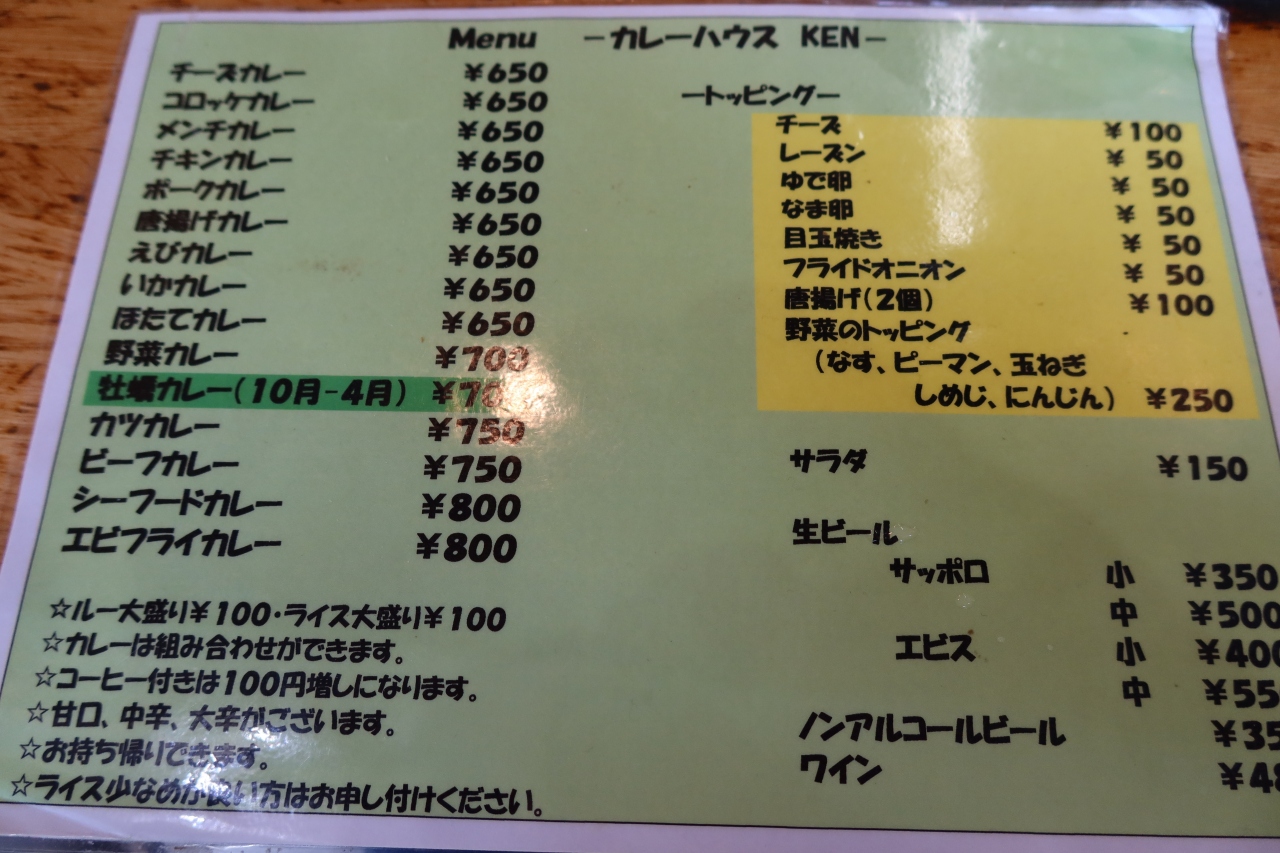 Menu －カレーハウス KEN－
チーズカレー ￥650
コロッケカレー ￥650
メンチカレー ￥650
チキンカレー ￥650
ポークカレー ￥650
唐揚げカレー ￥650
えびカレー ￥650
いかカレー ￥650
ほたてカレー ￥650
野菜カレー ￥700
牡蠣カレー（10月-4月）
カツカレー ￥750
ビーフカレー ￥750
シーフードカレー ￥800
エビフライカレー ￥800
☆ルー大盛り￥100・ライス大盛り￥100
☆カレーは組み合わせができます。
☆コーヒー付きは100円増しになります。
☆甘口、中辛、大辛がございます。
☆お持ち帰りできます。
☆ライス少なめが良い方はお申し付けください。
ートッピングー
チーズ ￥100
レーズン ￥ 50
ゆで卵 ￥ 50
なま卵 ￥ 50
目玉焼き ￥ 50
フライドオニオン ￥ 50
唐揚げ（2個） ￥100
野菜のトッピング
（なす、ピーマン、玉ねぎ
しめじ、にんじん） ￥250
サラダ ￥150
生ビール
サッポロ 小 ￥350
中 ￥500
エビス 小 ￥400
中
ノンアルコールビール
ワイン